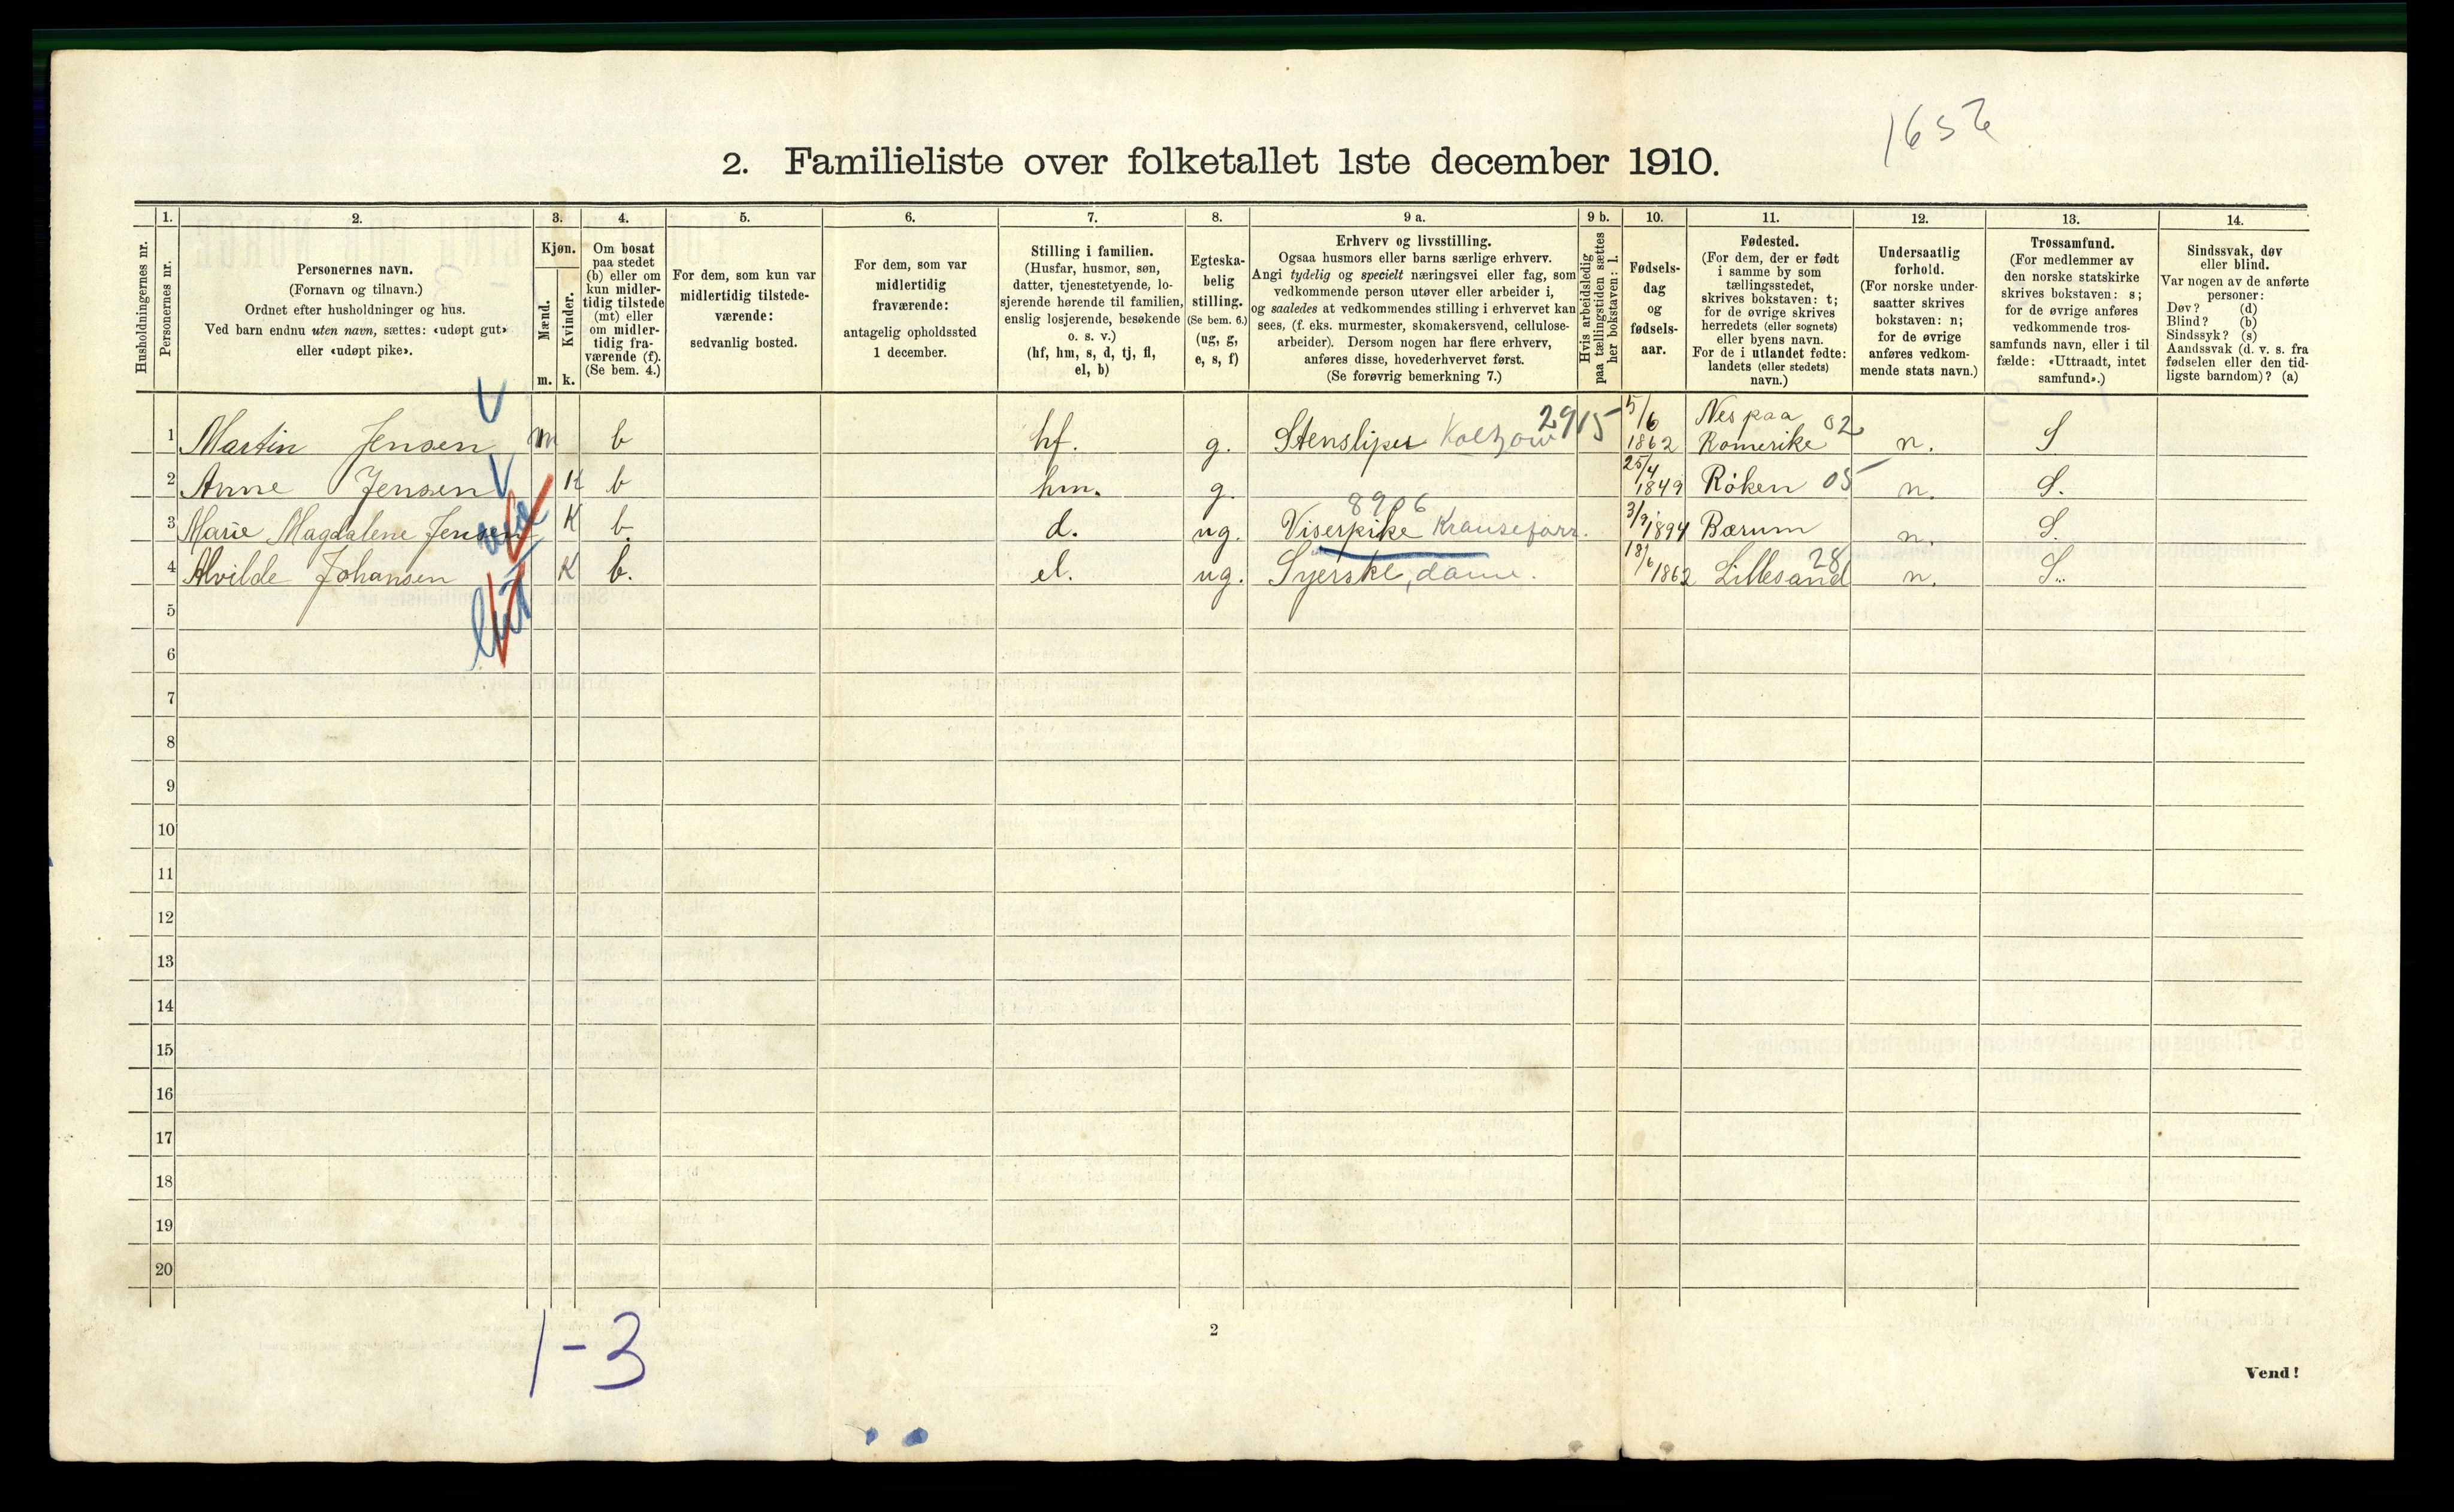 1652
2. Familieliste over folketallet 1ste december 1910.
Husholdningernes nr.
1. Personernes nr.
2. Personernes navn.
(Fornavn og tilnavn.)
Ordnet efter husholdninger og hus.
Ved barn endnu uten navn, sættes: «udøpt gut»
eller «udøpt pike».
3. Kjøn.
Mænd. m.
Kvinder. k.
4. Om bosat
paa stedet
(b) eller om
kun midler-
tidig tilstede
(mt) eller
om midler-
tidig fra-
værende (f).
(Se bem. 4.)
5. For dem, som kun var
midlertidig tilstede-
værende:
sedvanlig bosted.
6. For dem, som var
midlertidig
fraværende:
antagelig opholdssted
1 december.
7. Stilling i familien.
(Husfar, husmor, søn,
datter, tjenestetyende, lo-
sjerende hørende til familien,
enslig losjerende, besøkende
o. s. v.)
(hf, hm, s, d, tj, fl,
el, b)
8. Egteska-
belig
stilling.
(Se bem. 6.)
(ug, g,
e, s, f)
9 a. Erhverv og livsstilling.
Ogsaa husmors eller barns særlige erhverv.
Angi tydelig og specielt næringsvei eller fag, som
vedkommende person utøver eller arbeider i,
og saaledes at vedkommendes stilling i erhvervet kan
sees, (f. eks. murmester, skomakersvend, cellulose-
arbeider). Dersom nogen har flere erhverv,
anføres disse, hovederhvervet først.
(Se forøvrig bemerkning 7.)
9 b. Hvis arbeidsledig
paa tællingstiden sættes
her bokstaven: l.
10. Fødsels-
dag
og
fødsels-
aar.
11. Fødested.
(For dem, der er født
i samme by som
tællingsstedet,
skrives bokstaven: t;
for de øvrige skrives
herredets (eller sognets)
eller byens navn.
For de i utlandet fødte:
landets (eller stedets)
navn.)
12. Undersaatlig
forhold.
(For norske under-
saatter skrives
bokstaven: n;
for de øvrige
anføres vedkom-
mende stats navn.)
13. Trossamfund.
(For medlemmer av
den norske statskirke
skrives bokstaven: s;
for de øvrige anføres
vedkommende tros-
samfunds navn, eller i til
fælde: «Uttraadt, intet
samfund».)
14. Sindssvak, døv
eller blind.
Var nogen av de anførte
personer:
Døv? (d)
Blind? (b)
Sindssyk? (s)
Aandssvak (d. v. s. fra
fødselen eller den tid-
ligste barndom)? (a)
1 Martin Jensen m b hf. g. Stensliper Koltzow 2915 5/6 1862 Nes paa Romerike 02 n. S
2 Anne Jensen K b hm. g. 25/4 1849 Røken 05 n. S.
3 Marie Magdalene Jensen K b. d. ug. Viserpike Krauseforr. 8906 3/9 1894 Bærum n. S.
4 Alvilde Johansen K b. el. ug. Syerske, dame. 18/6 1862 Lillesand 28 n. S.
5
6
7
8
9
10
11
12
13
14
15
16
17
18
19
20
1-3
2
Vend!